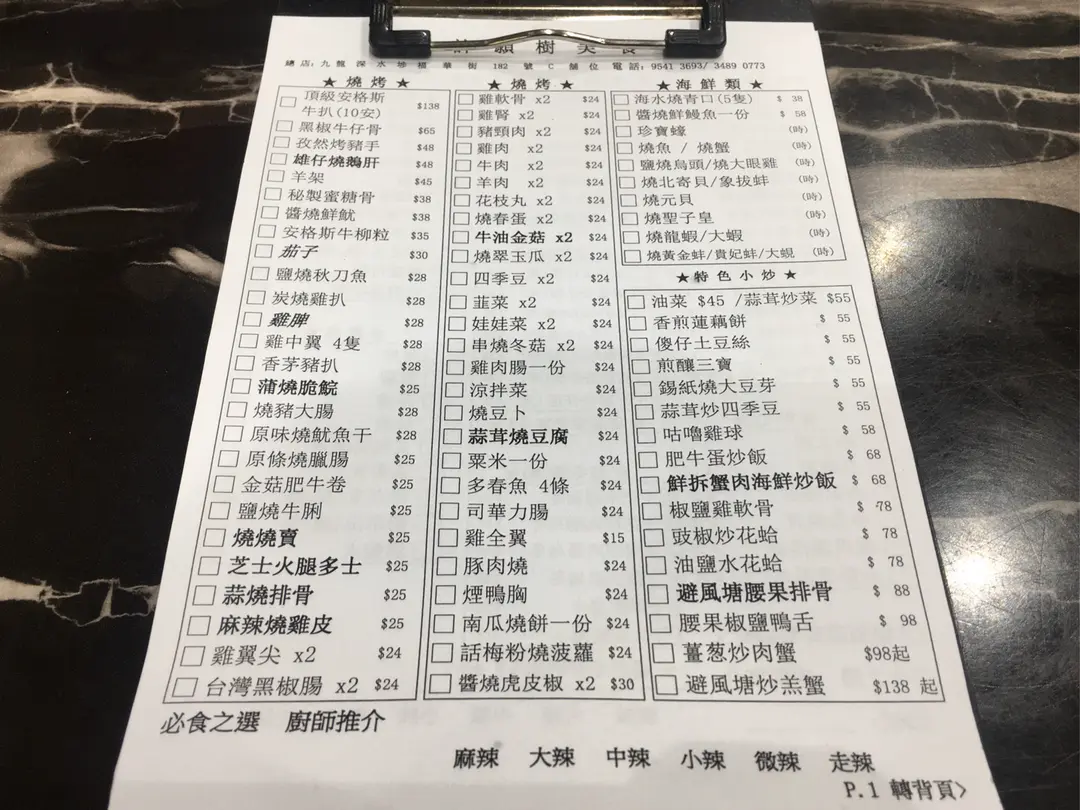 許願樹美食
總店:九龍深水埗福華街 182 號 C 舖位 電話:9541 3693/ 3489 0773
★ 燒烤 ★
頂級安格斯
牛扒(10安) $138
黑椒牛仔骨 $65
孜然烤豬手 $48
雄仔燒鵝肝 $48
羊架 $45
秘製蜜糖骨 $38
醬燒鮮魷 $38
安格斯牛柳粒 $35
茄子 $30
鹽燒秋刀魚 $28
炭燒雞扒 $28
雞脾 $28
雞中翼 4隻 $28
香茅豬扒 $28
蒲燒脆鯇 $25
燒豬大腸 $28
原味燒魷魚干 $28
原條燒臘腸 $25
金菇肥牛卷 $25
鹽燒牛脷 $25
燒燒賣 $25
芝士火腿多士 $25
蒜燒排骨 $25
麻辣燒雞皮 $25
雞翼尖 x2 $24
台灣黑椒腸 x2 $24
★ 燒烤 ★
雞軟骨 x2 $24
雞腎 x2 $24
豬頸肉 x2 $24
雞肉 x2 $24
牛肉 x2 $24
羊肉 x2 $24
花枝丸 x2 $24
燒春蛋 x2 $24
牛油金菇 x2 $24
燒翠玉瓜 x2 $24
四季豆 x2 $24
韮菜 x2 $24
娃娃菜 x2 $24
串燒冬菇 x2 $24
雞肉腸一份 $24
涼拌菜 $24
燒豆卜 $24
蒜茸燒豆腐 $24
粟米一份 $24
多春魚 4條 $24
司華力腸 $24
雞全翼 $15
豚肉燒 $24
煙鴨胸 $24
南瓜燒餅一份 $24
話梅粉燒菠蘿 $24
醬燒虎皮椒 x2 $30
★海鮮類★
海水燒青口(5隻) $ 38
醬燒鮮鰻魚一份 $ 58
珍寶蠔 (時)
燒魚 / 燒蟹 (時)
鹽燒烏頭/燒大眼雞 (時)
燒北寄貝/象拔蚌 (時)
燒元貝 (時)
燒聖子皇 (時)
燒龍蝦/大蝦 (時)
燒黃金蚌/貴妃蚌/大蜆 (時)
★特色小炒★
油菜 $45 /蒜茸炒菜 $55
香煎蓮藕餅 $ 55
傻仔土豆絲 $ 55
煎釀三寶 $ 55
錫紙燒大豆芽 $ 55
蒜茸炒四季豆 $ 55
咕嚕雞球 $ 58
肥牛蛋炒飯 $ 68
鮮拆蟹肉海鮮炒飯 $ 68
椒鹽雞軟骨 $ 78
豉椒炒花蛤 $ 78
油鹽水花蛤 $ 78
避風塘腰果排骨 $ 88
腰果椒鹽鴨舌 $ 98
薑葱炒肉蟹 $98起
避風塘炒羔蟹 $138 起
必食之選 廚師推介
麻辣 大辣 中辣 小辣 微辣 走辣
P.1 轉背頁>